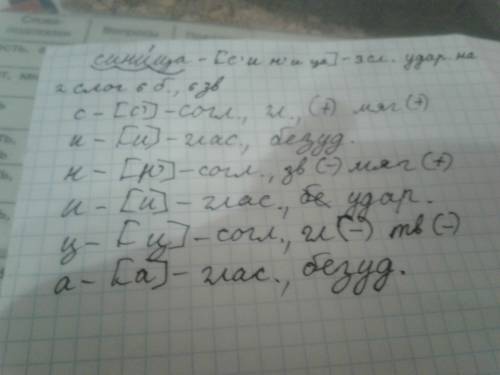 синица - [с' и н' и ца] - 3 сл. удар. на
2 слог 6 б., 6 зв
с - [с'] - согл., гл., (+) мяг (+)
и - [и] - глас., безуд.
н - [н'] - согл., зв (-) мяг (+)
и - [и] - глас., удар.
ц - [ц] - согл., гл (-) тв (-)
а - [а] - глас., безуд.